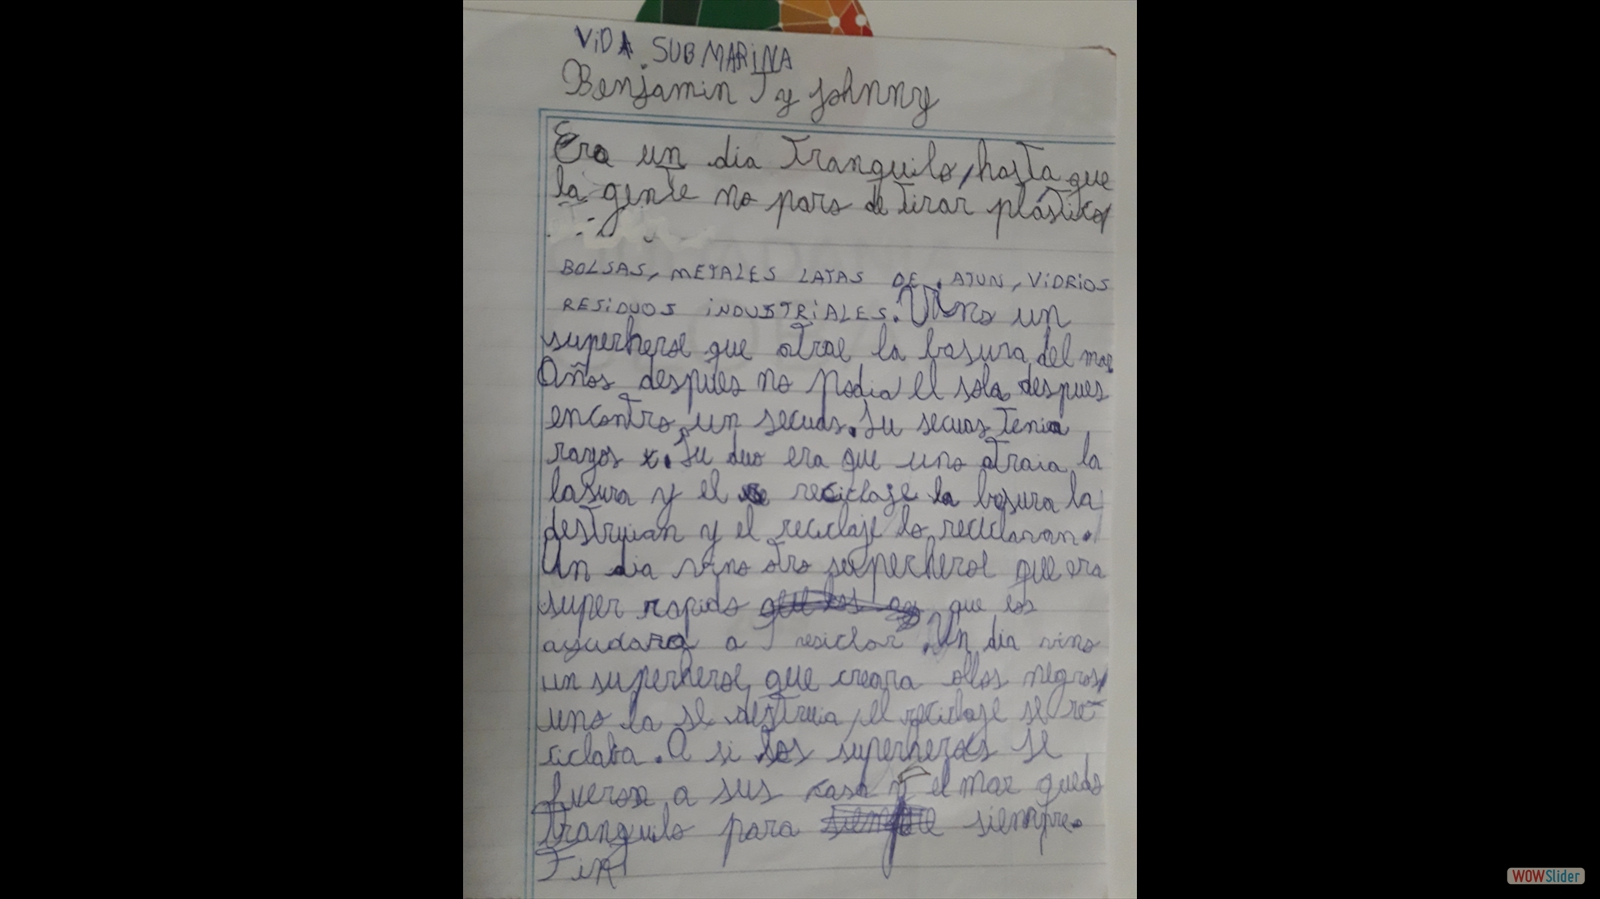 VIDA SUBMARINA
Benjamin J y Johnny
Era un dia tranquilo, hasta que
la gente no paro de tirar plástico,
BOLSAS, METALES LATAS DE ATUN, VIDRIOS
RESIDUOS INDUSTRIALES. Vino un
superheroe que atrae la basura del mar
Años despues no podia el solo despues
encontro un secuas. Su secuas tenia
rayos x. Su duo era que uno atraia la
basura y el reciclaje la basura la
destruian y el reciclaje lo reciclavan.
Un dia vino otro superheroe que era
super rapido que los
ayudara a resiclar. Un dia vino
un superheroe que creara ollos negros,
uno la se destruia, el reciclaje se re-
ciclaba. A si los superheroes se
fueron a sus casa y el mar quedo
tranquilo para siempre.
Fin
WOWSlider